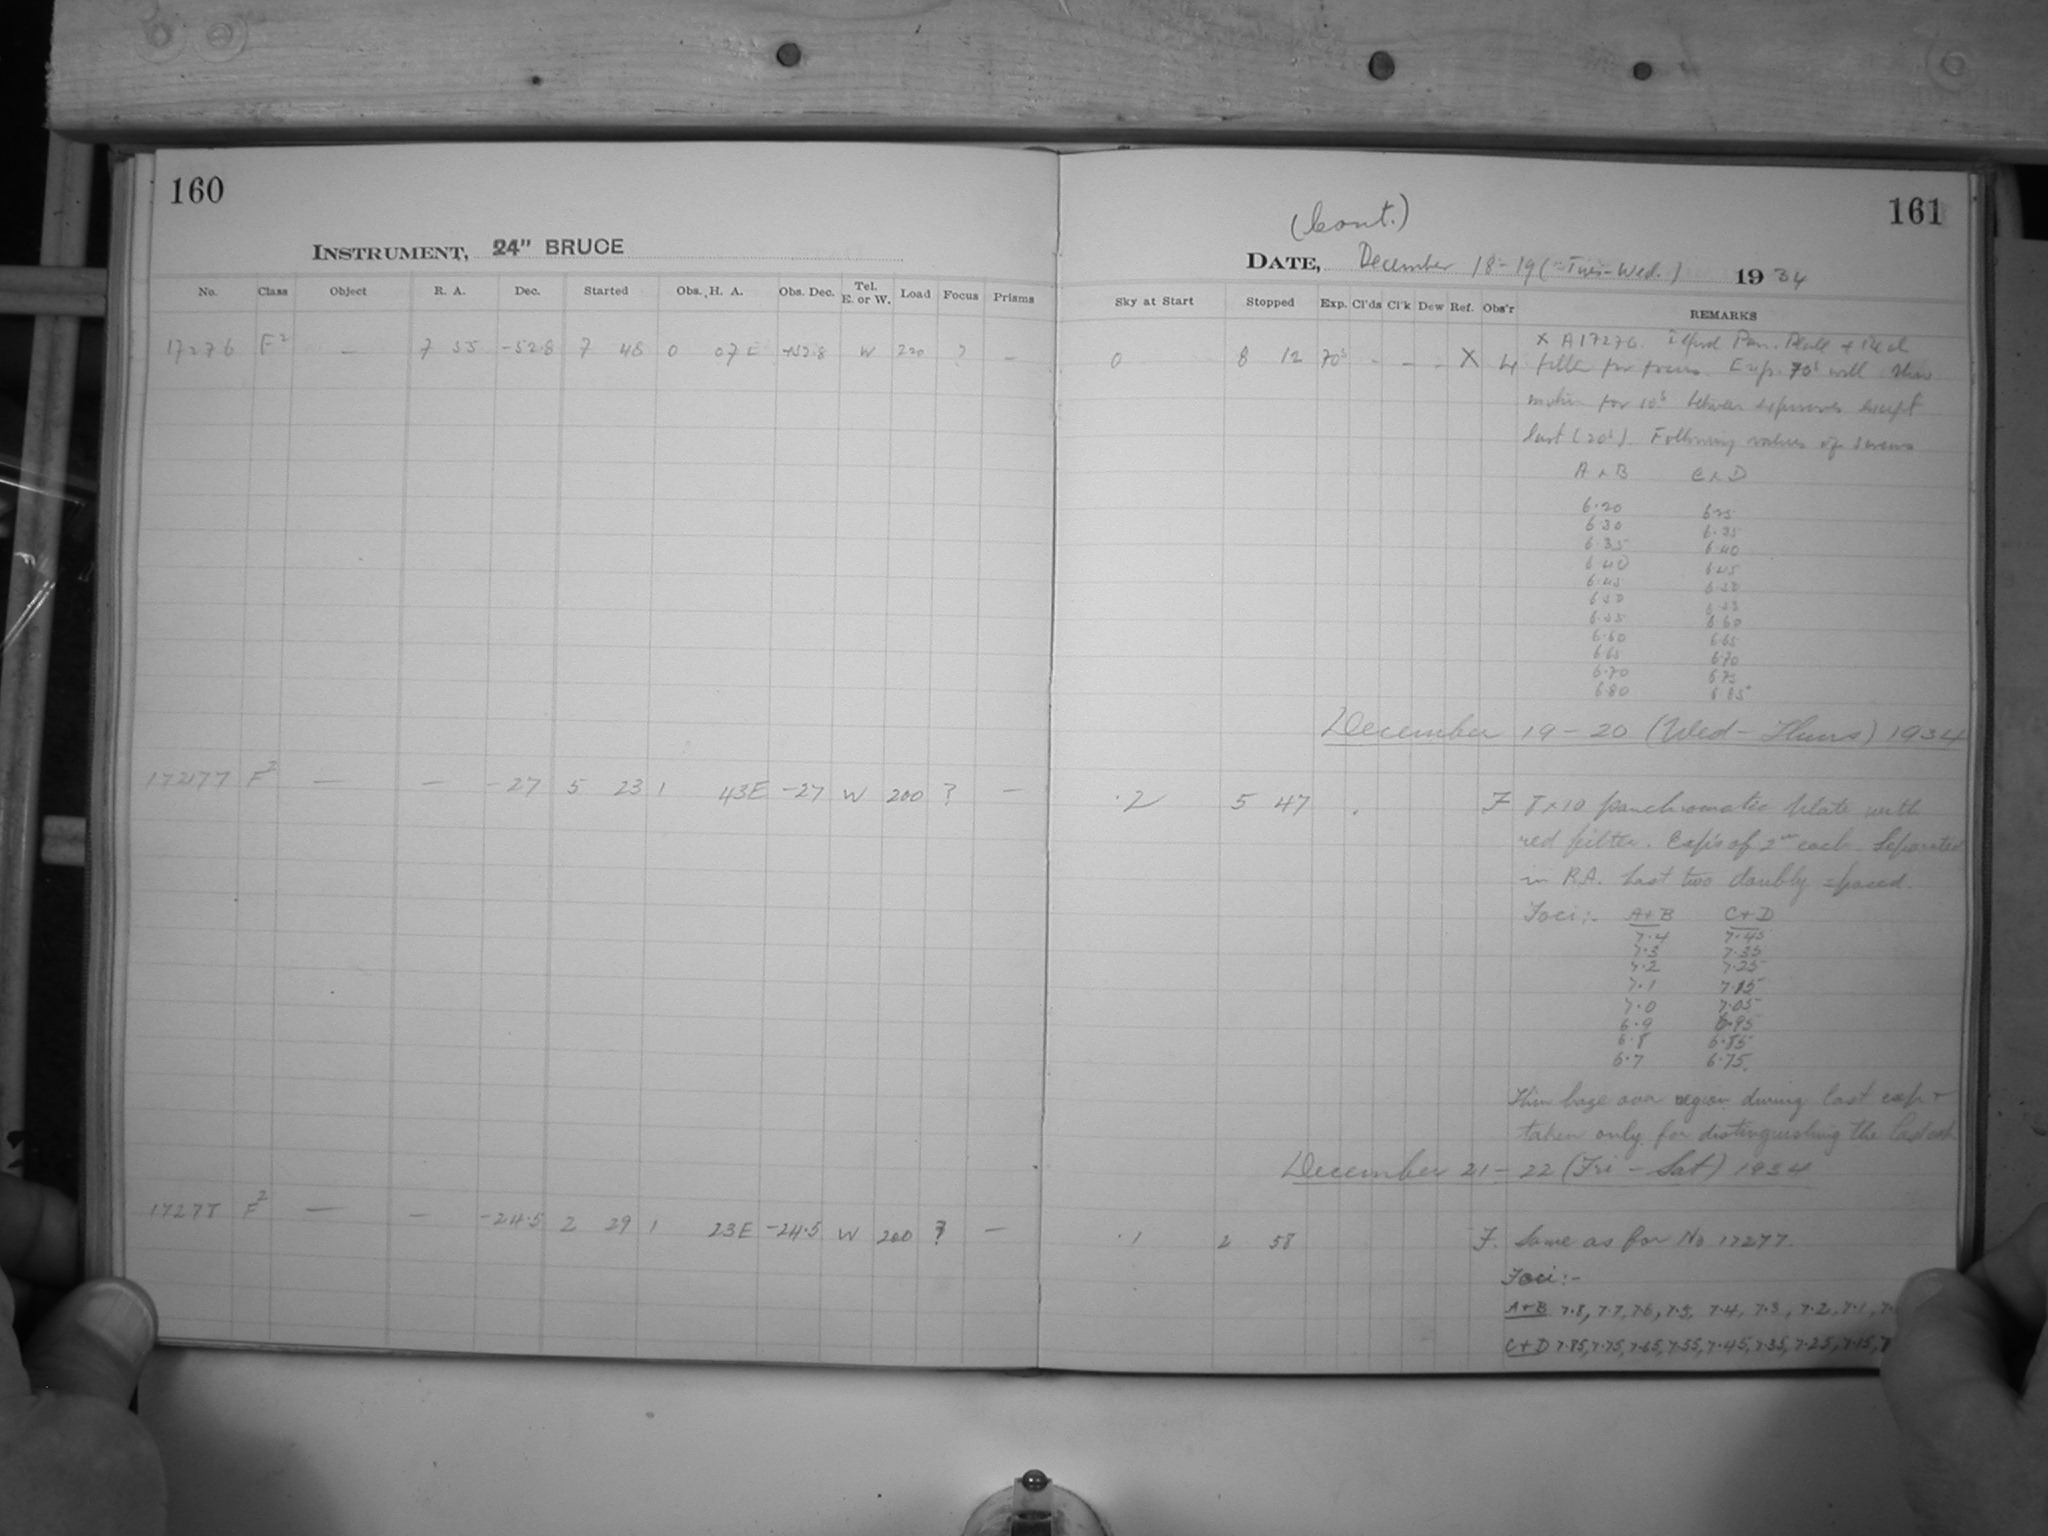 160
INSTRUMENT, 24" BRUCE
No. Class Object R. A. Dec. Started Obs. H. A. Obs. Dec. Tel. E. or W. Load Focus Prisms
17276 F2 — 7 55 -52.8 7 48 0 07 E -52.8 W 220 ? —
17277 F2 — — -27 5 23 1 43E -27 W 200 ? —
17278 F2 — — -24.5 2 29 1 23E -24.5 W 200 ? —
161
(Cont.)
DATE, December 18-19 (Tues-Wed.) 1934
Sky at Start Stopped Exp. Cl'ds Cl'k Dew Ref. Obs'r REMARKS
0 8 12 70s - - - X 4 X A17276. Ilford Pan. Plate + Red
filter for focus. Exp. 70s with slow
motion for 10s between exposures except
last (20s). Following values of screws
A + B C + D
6.20 6.25
6.30 6.35
6.35 6.40
6.40 6.45
6.45 6.50
6.50 6.55
6.55 6.60
6.60 6.65
6.65 6.70
6.70 6.75
6.80 6.85
December 19-20 (Wed-Thurs) 1934
.2 5 47 F 8x10 panchromatic plate with
red filter. Exp's of 2m each. Separated
in R.A. Last two doubly spaced.
Foci:- A+B C+D
7.4 7.45
7.3 7.35
7.2 7.25
7.1 7.15
7.0 7.05
6.9 6.95
6.8 6.85
6.7 6.75
Thin haze over region during last exp +
taken only for distinguishing the last
December 21-22 (Fri-Sat) 1934
.1 2 58 F. Same as for No 17277.
Foci:-
A+B 7.8, 7.7, 7.6, 7.5, 7.4, 7.3, 7.2, 7.1,
C+D 7.85, 7.75, 7.65, 7.55, 7.45, 7.35, 7.25, 7.15,